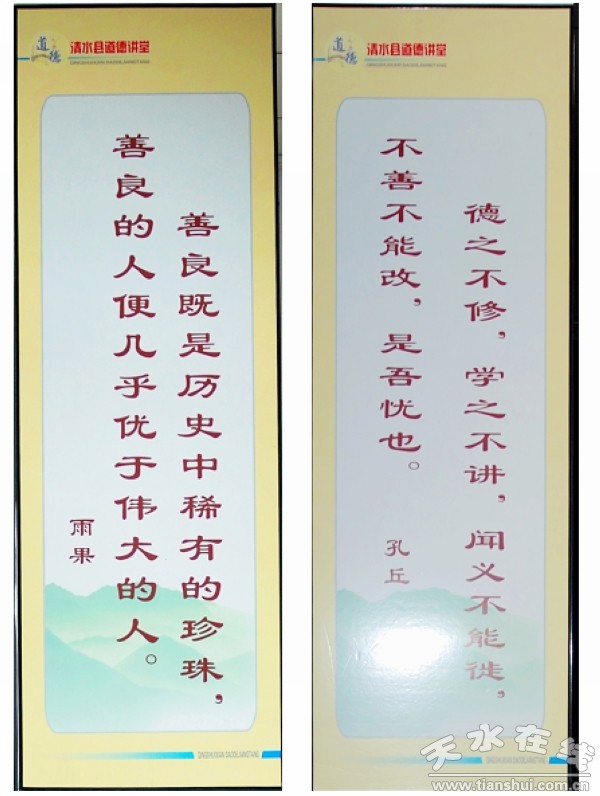 道德
清水县道德讲堂
QINGSHUIXIAN DAODEJIANGTANG
善良既是历史中稀有的珍珠，
善良的人便几乎优于伟大的人。
雨果
QINGSHUIXIAN DAODEJIANGTANG
道德
清水县道德讲堂
QINGSHUIXIAN DAODEJIANGTANG
德之不修，学之不讲，闻义不能徙，
不善不能改，是吾忧也。
孔丘
QINGSHUIXIAN DAODEJIANGTANG
天水在线
www.tianshui.com.cn